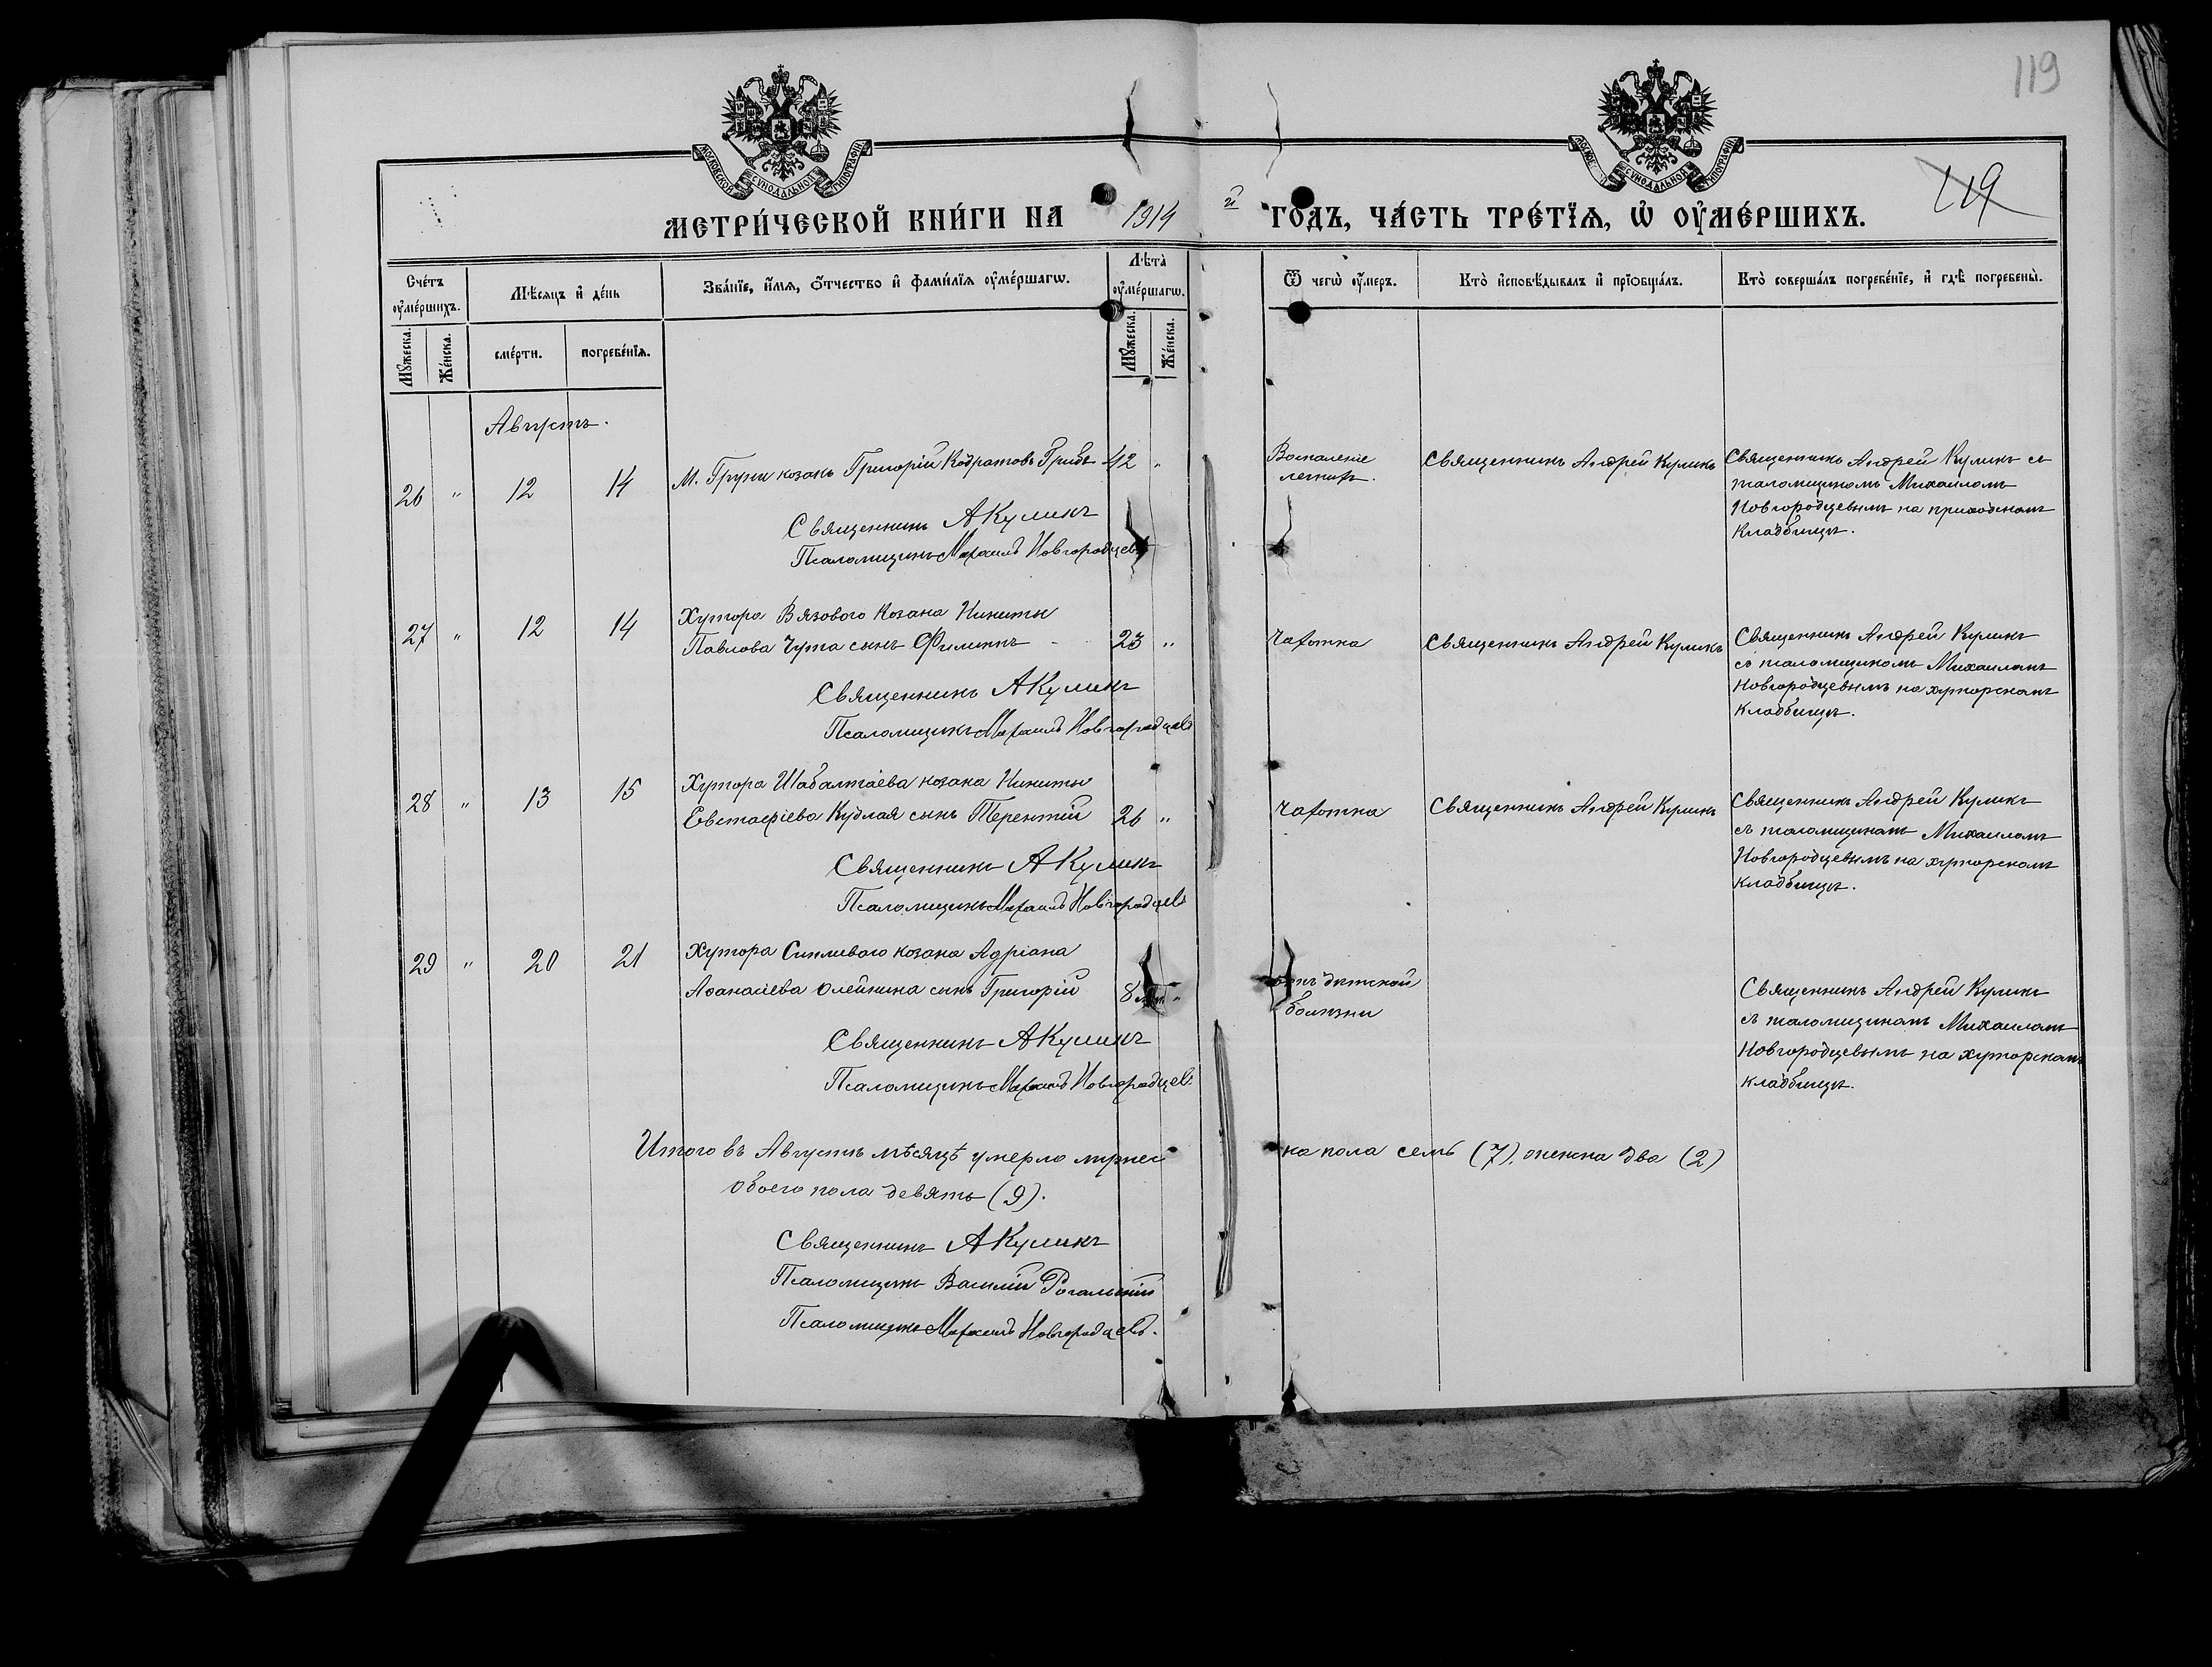 119
119
МОСКОВСКОЙ СѴНОДАЛЬНОЙ ТИПОГРАФІИ
СѴНОДАЛЬНОЙ ТИПОГРАФІИ
МЕТРИ́ЧЕСКОЙ КНИ́ГИ НА 1914 й ГОДЪ, ЧА́СТЬ ТРЕ́ТЇѦ, Ѡ҆ ОУ҆МЕ́РШИХЪ.
Сче́тъ оу҆ме́ршихъ.
Мꙋ́жеска.
Же́нска.
Мѣ́сяцъ и҆ де́нь
сме́рти.
погребе́нїѧ.
Зва́нїе, и҆́мѧ, ѻ҆́тчество и҆ фами́лїѧ оу҆ме́ршагѡ.
Лѣ́та оу҆ме́ршагѡ.
Мꙋ́жеска.
Же́нска.
Ѿ чегѡ̀ оу҆́меръ.
Кто̀ и҆сповѣ́дывалъ и҆ прїѡбща́лъ.
Кто̀ соверша́лъ погребе́нїе, и҆ гдѣ̀ погребены̀.
Августъ.
26 " 12 14 М. Груни козакъ Григорій Кодратовъ Грибъ 42 "
Священникъ АКуликъ
Псаломщикъ Михаилъ Новгородцевъ
Воспаленіе
легкихъ.
Священникъ Андрей Куликъ
Священникъ Андрей Куликъ съ
псаломщикомъ Михаиломъ
Новгородцевымъ на приходскомъ
кладбищѣ.
27 " 12 14 Хутора Вязового козака Никиты
Павлова Чута сынъ Филиппъ 23 "
Священникъ АКуликъ
Псаломщикъ Михаилъ Новгородцевъ
Чахотка
Священникъ Андрей Куликъ
Священникъ Андрей Куликъ
съ псаломщикомъ Михаиломъ
Новгородцевымъ на хуторскомъ
кладбищѣ.
28 " 13 15 Хутора Шабалтаева козака Никиты
Евстафіева Кудлая сынъ Терентій 26 "
Священникъ АКуликъ
Псаломщикъ Михаилъ Новгородцевъ
Чахотка
Священникъ Андрей Куликъ
Священникъ Андрей Куликъ
съ псаломщикомъ Михаиломъ
Новгородцевымъ на хуторскомъ
кладбищѣ.
29 " 20 21 Хутора козака Адріана
Аѳанасіева Олейника сынъ Григорій 8 "
Священникъ АКуликъ
Псаломщикъ Михаилъ Новгородцевъ
дѣтской
болѣзни
Священникъ Андрей Куликъ
съ псаломщикомъ Михаиломъ
Новгородцевымъ на хуторскомъ
кладбищѣ.
Итого въ Августѣ мѣсяцѣ умерло мужес
ка пола семь (7), женска два (2)
обоего пола девять (9).
Священникъ АКуликъ
Псаломщикъ Василій Рогальскій
Псаломщикъ Михаилъ Новгородцевъ.